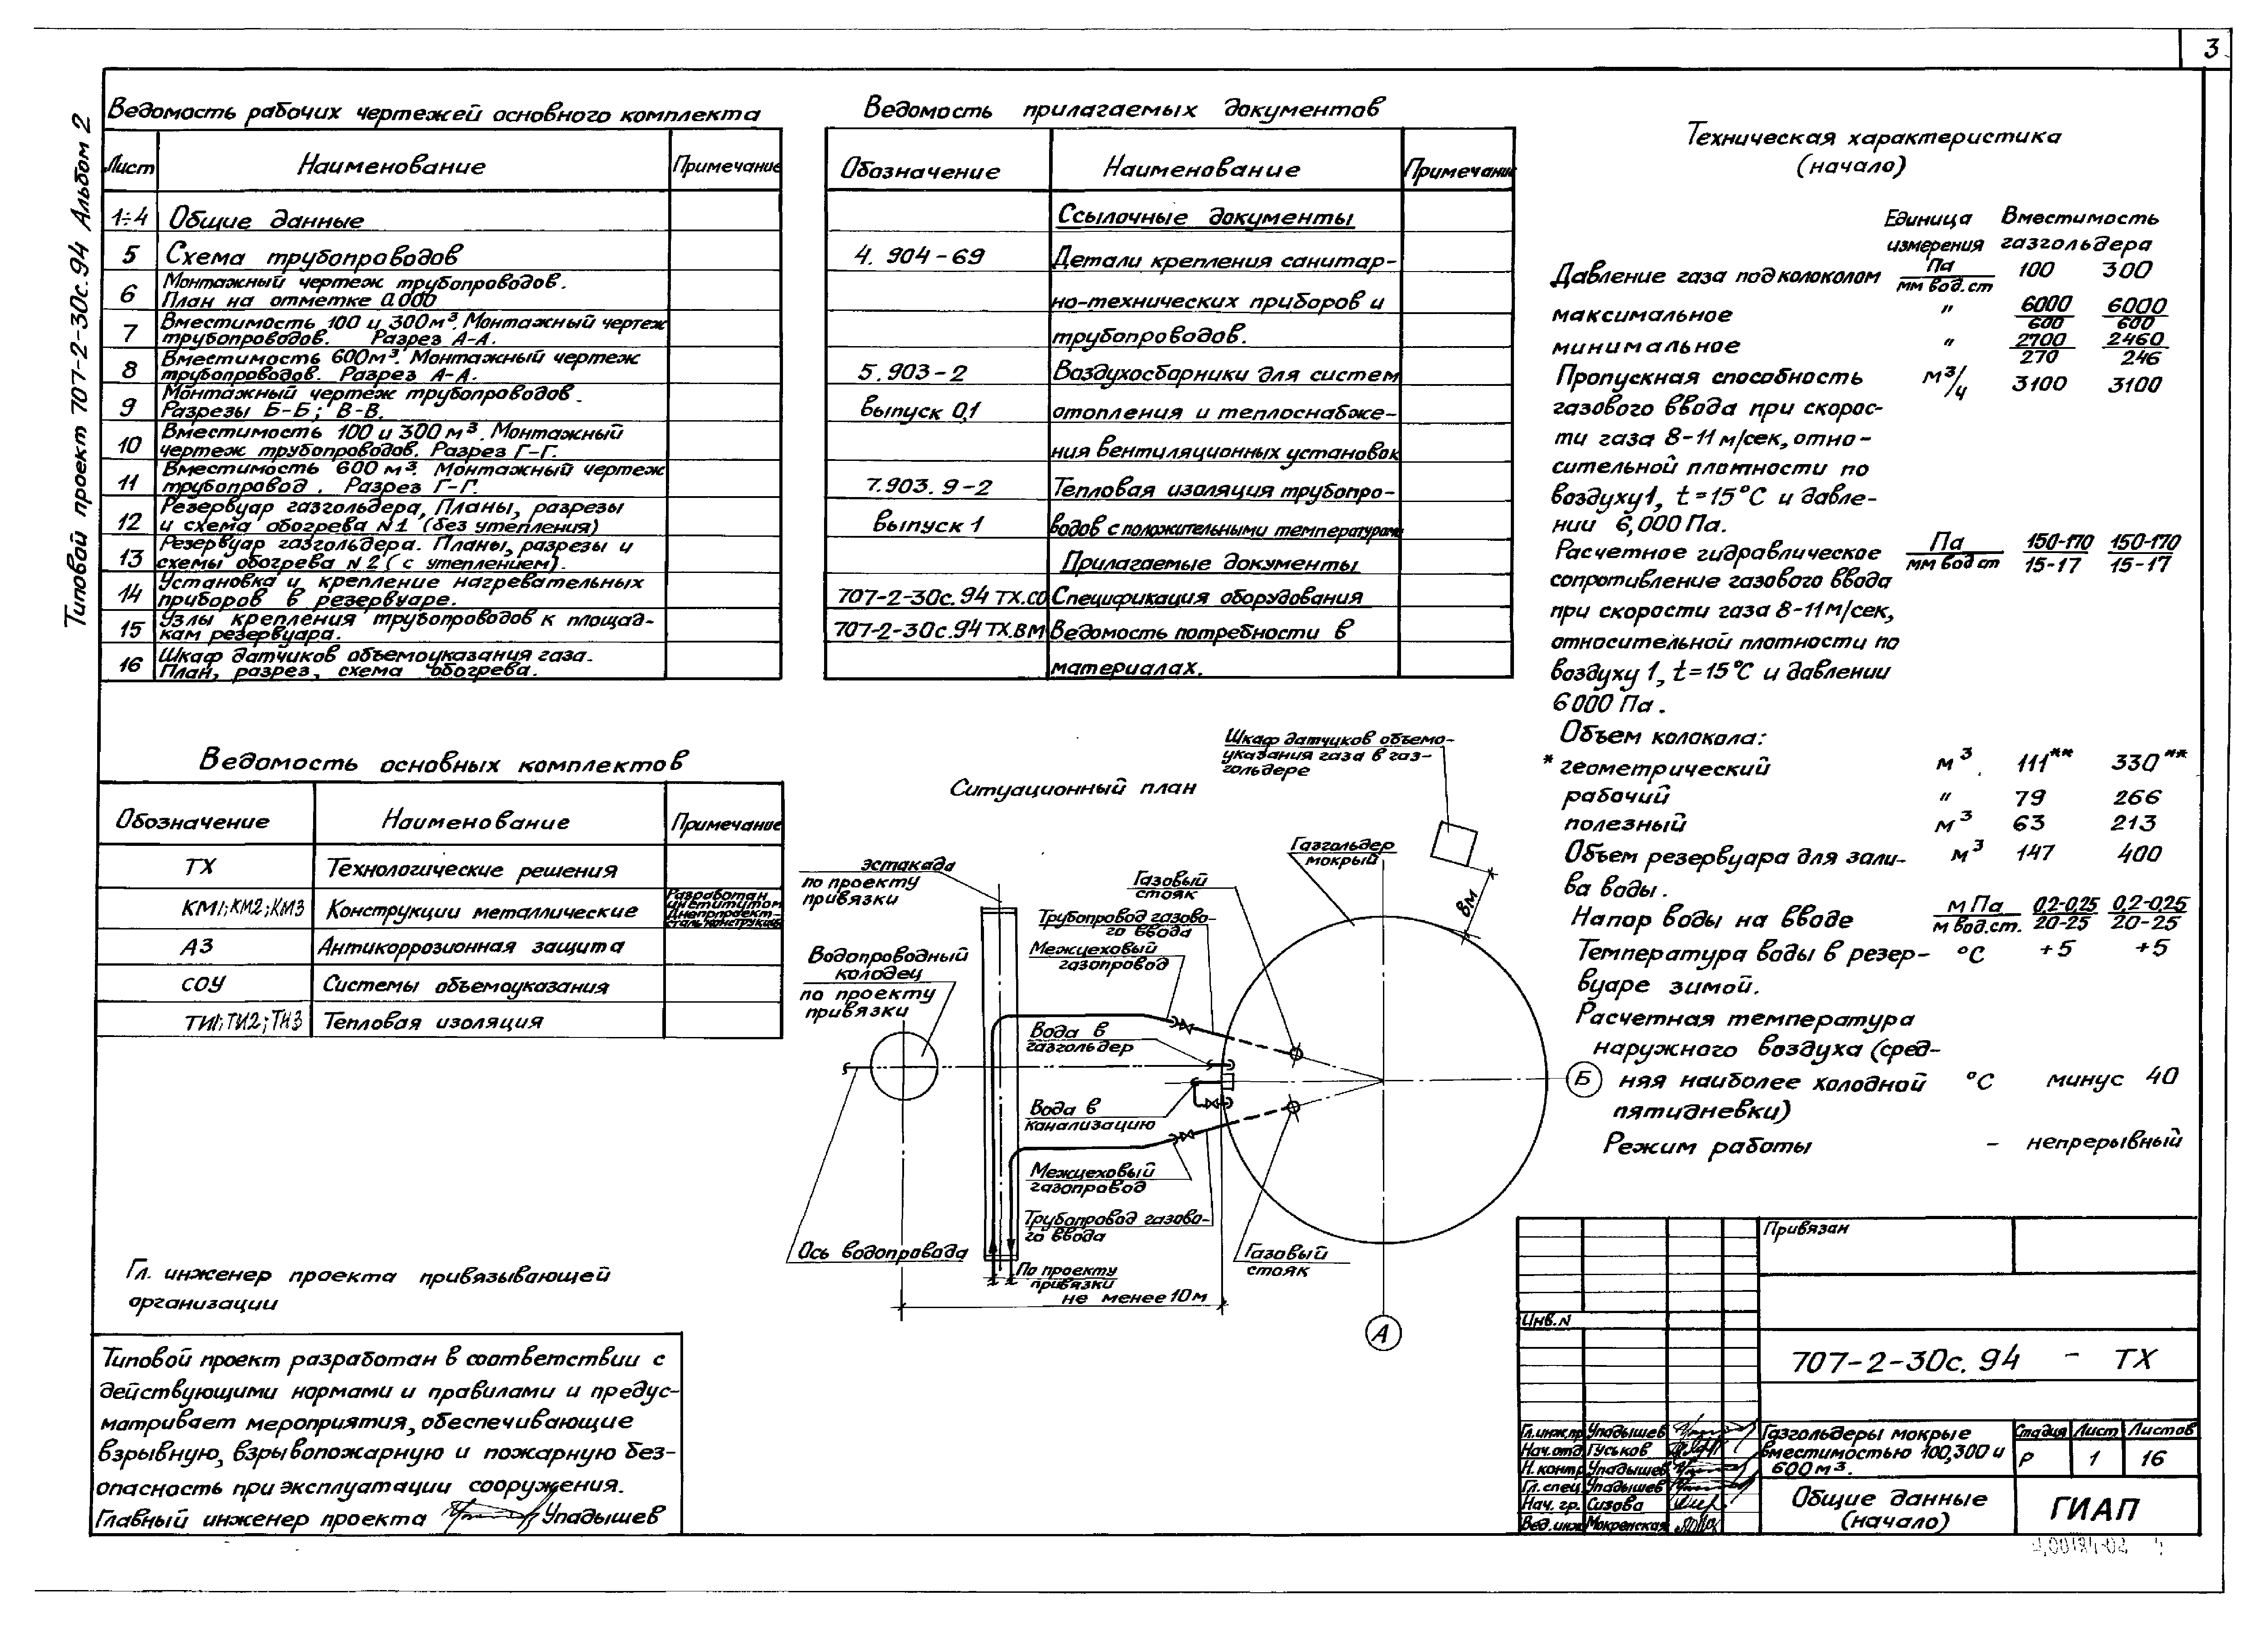 3
Типовой проект 707-2-30с.94 Альбом 2
Ведомость рабочих чертежей основного комплекта
Лист Наименование Примечание
1÷4 Общие данные
5 Схема трубопроводов
6 Монтажный чертеж трубопроводов.
План на отметке 0.000
7 Вместимость 100 и 300м³. Монтажный чертеж
трубопроводов. Разрез А-А.
8 Вместимость 600м³. Монтажный чертеж
трубопроводов. Разрез А-А.
9 Монтажный чертеж трубопроводов.
Разрезы Б-Б; В-В.
10 Вместимость 100 и 300 м³. Монтажный
чертеж трубопроводов. Разрез Г-Г.
11 Вместимость 600 м³. Монтажный чертеж
трубопровод. Разрез Г-Г.
12 Резервуар газгольдера, Планы, разрезы
и схема обогрева N1 (без утепления)
13 Резервуар газгольдера. Планы, разрезы и
схемы обогрева N2 (с утеплением).
14 Установка и крепление нагревательных
приборов в резервуаре.
15 Узлы крепления трубопроводов к площад-
кам резервуара.
16 Шкаф датчиков объемоуказания газа.
План, разрез, схема обогрева.
Ведомость прилагаемых документов
Обозначение Наименование Примечание
Ссылочные документы
4. 904-69 Детали крепления санитар-
но-технических приборов и
трубопроводов.
5.903-2 Воздухосборники для систем
выпуск 0,1 отопления и теплоснабже-
ния вентиляционных установок
7.903.9-2 Тепловая изоляция трубопро-
выпуск 1 водов с положительными температурами
Прилагаемые документы
707-2-30с.94 ТХ.СО Спецификация оборудования
707-2-30с.94 ТХ.ВМ Ведомость потребности в
материалах.
Техническая характеристика
(начало)
Единица Вместимость
измерения газгольдера
Давление газа под колоколом Па/мм вод.ст 100 300
максимальное " 6000/600 6000/600
минимальное " 2700/270 2460/246
Пропускная способность м³/ч 3100 3100
газового ввода при скорос-
ти газа 8-11 м/сек, отно-
сительной плотности по
воздуху 1, t=15°С и давле-
нии 6,000 Па.
Расчетное гидравлическое Па/мм вод ст 150-170/15-17 150-170/15-17
сопротивление газового ввода
при скорости газа 8-11м/сек,
относительной плотности по
воздуху 1, t=15°С и давлении
6000 Па.
Объем колокола:
* геометрический м³. 111** 330**
рабочий " 79 266
полезный м³ 63 213
Объем резервуара для зали- м³ 147 400
ва воды.
Напор воды на вводе мПа/м вод.ст. 0,2-0,25/20-25 0,2-0,25/20-25
Температура воды в резер- °С +5 +5
вуаре зимой.
Расчетная температура
наружного воздуха (сред-
няя наиболее холодной °С минус 40
пятидневки)
Режим работы - непрерывный
Ведомость основных комплектов
Обозначение Наименование Примечание
ТХ Технологические решения
КМ1; КМ2; КМ3 Конструкции металлические Разработан
институтом
Днепрпроект-
стальконструкция
АЗ Антикоррозионная защита
СОУ Системы объемоуказания
ТИ1; ТИ2; ТИ3 Тепловая изоляция
Ситуационный план
Шкаф датчиков объемо-
указания газа в газ-
гольдере
Газгольдер
мокрый
8м
эстакада
по проекту
привязки
Газовый
стояк
Трубопровод газово-
го ввода
Межцеховый
газопровод
Водопроводный
колодец
по проекту
привязки
Вода в
газгольдер
Б
Вода в
канализацию
Межцеховый
газопровод
Трубопровод газово-
го ввода
Ось водопровода
Газовый
стояк
По проекту
привязки
не менее 10м
А
Гл. инженер проекта привязывающей
организации
Типовой проект разработан в соответствии с
действующими нормами и правилами и предус-
матривает мероприятия, обеспечивающие
взрывную, взрывопожарную и пожарную без-
опасность при эксплуатации сооружения.
Главный инженер проекта Упадышев
Привязан
Инв.N
707-2-30с.94 - ТХ
Гл.инж.пр Упадышев
Нач.отд Гуськов
Н. контр Упадышев
Гл. спец Упадышев
Нач. гр. Сизова
Вед.инж Мокренская
Газгольдеры мокрые
вместимостью 100,300 и
600м³.
Стадия Лист Листов
Р 1 16
Общие данные
(начало)
ГИАП